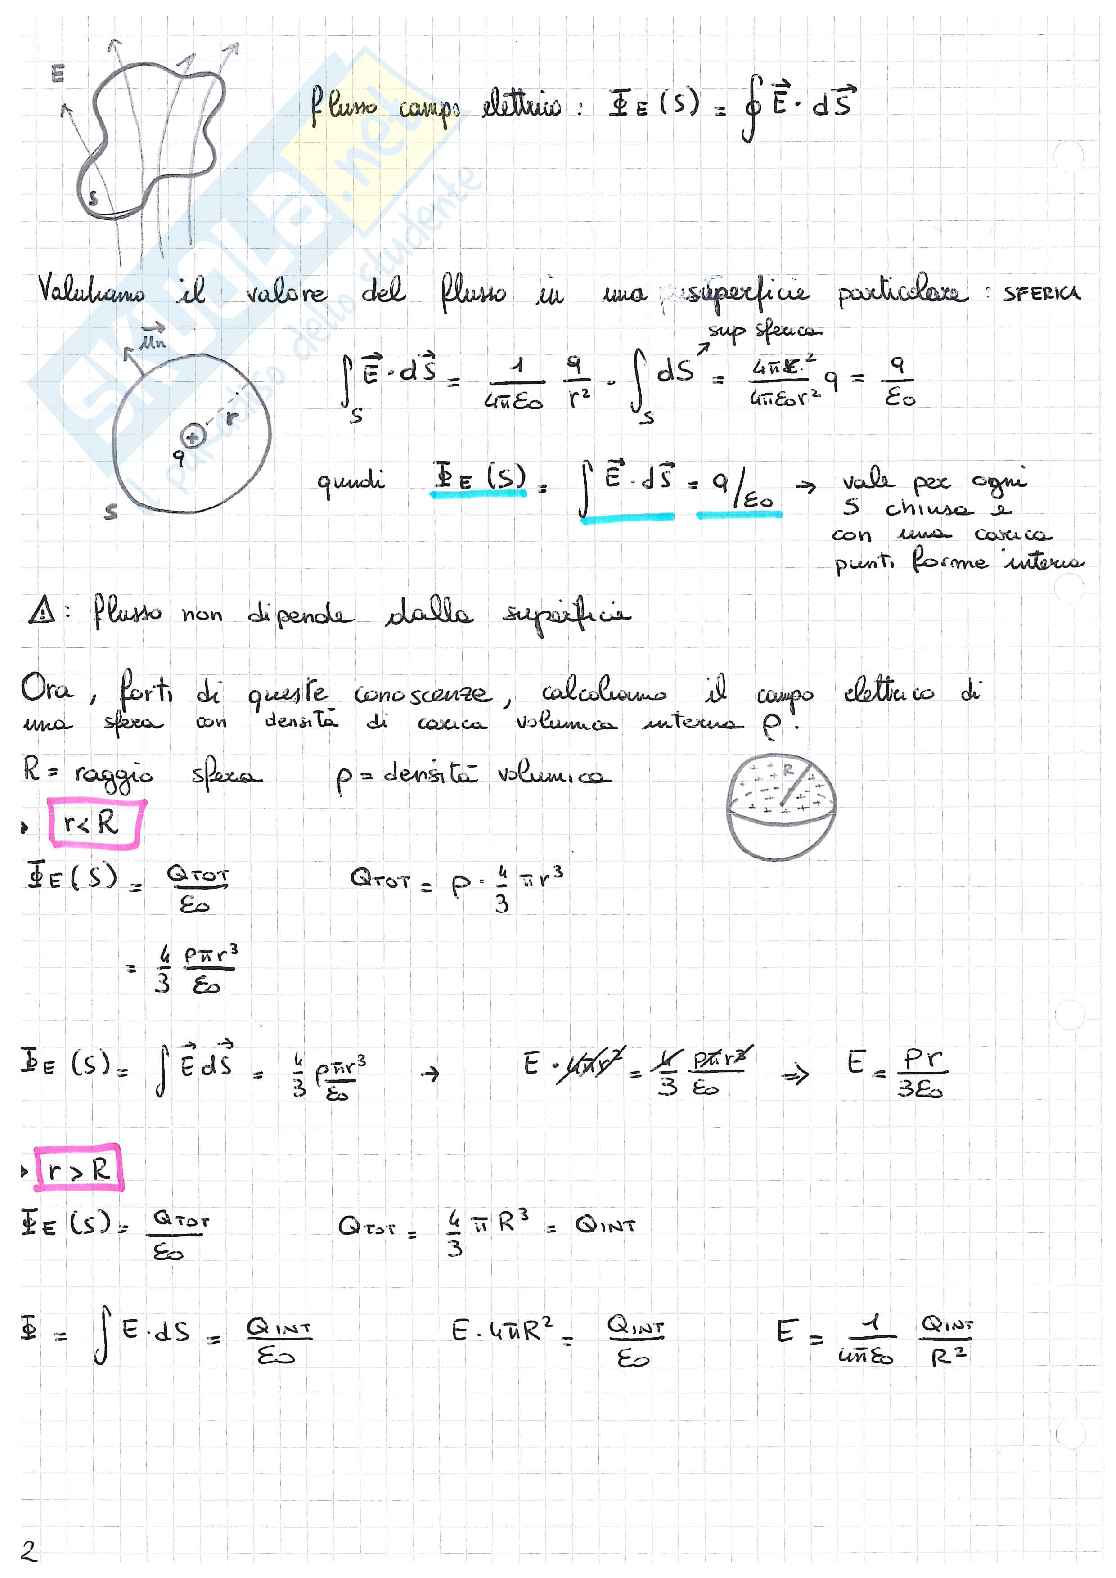 E
S
flusso campo elettrico : Φ_E (S) = ∮ E⃗ · dS⃗
Valutiamo il valore del flusso in una superficie particolare : SFERICA
u⃗n
r
q
S
sup sferica
∫_S E⃗ · dS⃗ = 1/(4πε0) q/r² · ∫_S dS = 4πr²/(4πε0r²) q = q/ε0
quindi Φ_E (S) = ∫ E⃗ · dS⃗ = q/ε0 → vale per ogni
S chiusa e
con una carica
punti forme interna
⚠ : flusso non dipende dalla superficie
Ora , forti di queste conoscenze, calcoliamo il campo elettrico di
una sfera con densità di carica volumica interna ρ .
R = raggio sfera ρ = densità volumica
R
r < R
Φ_E (S) = Q_TOT/ε0 Q_TOT = ρ · 4/3 πr³
= 4/3 ρπr³/ε0
Φ_E (S) = ∫ E⃗ dS⃗ = 4/3 ρπr³/ε0 → E · 4πr² = 4/3 ρπr³/ε0 ⇒ E = ρr/3ε0
r > R
Φ_E (S) = Q_TOT/ε0 Q_TOT = 4/3 π R³ = Q_INT
Φ = ∫ E · dS = Q_INT/ε0 E · 4πR² = Q_INT/ε0 E = 1/(4πε0) Q_INT/R²
2
SKUOLA.net
il paradiso dello studente